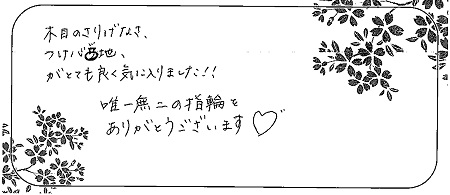 木目のさりげなさ、
つけ心地、
がとても良く気に入りました!!
唯一無二の指輪を
ありがとうございます♡